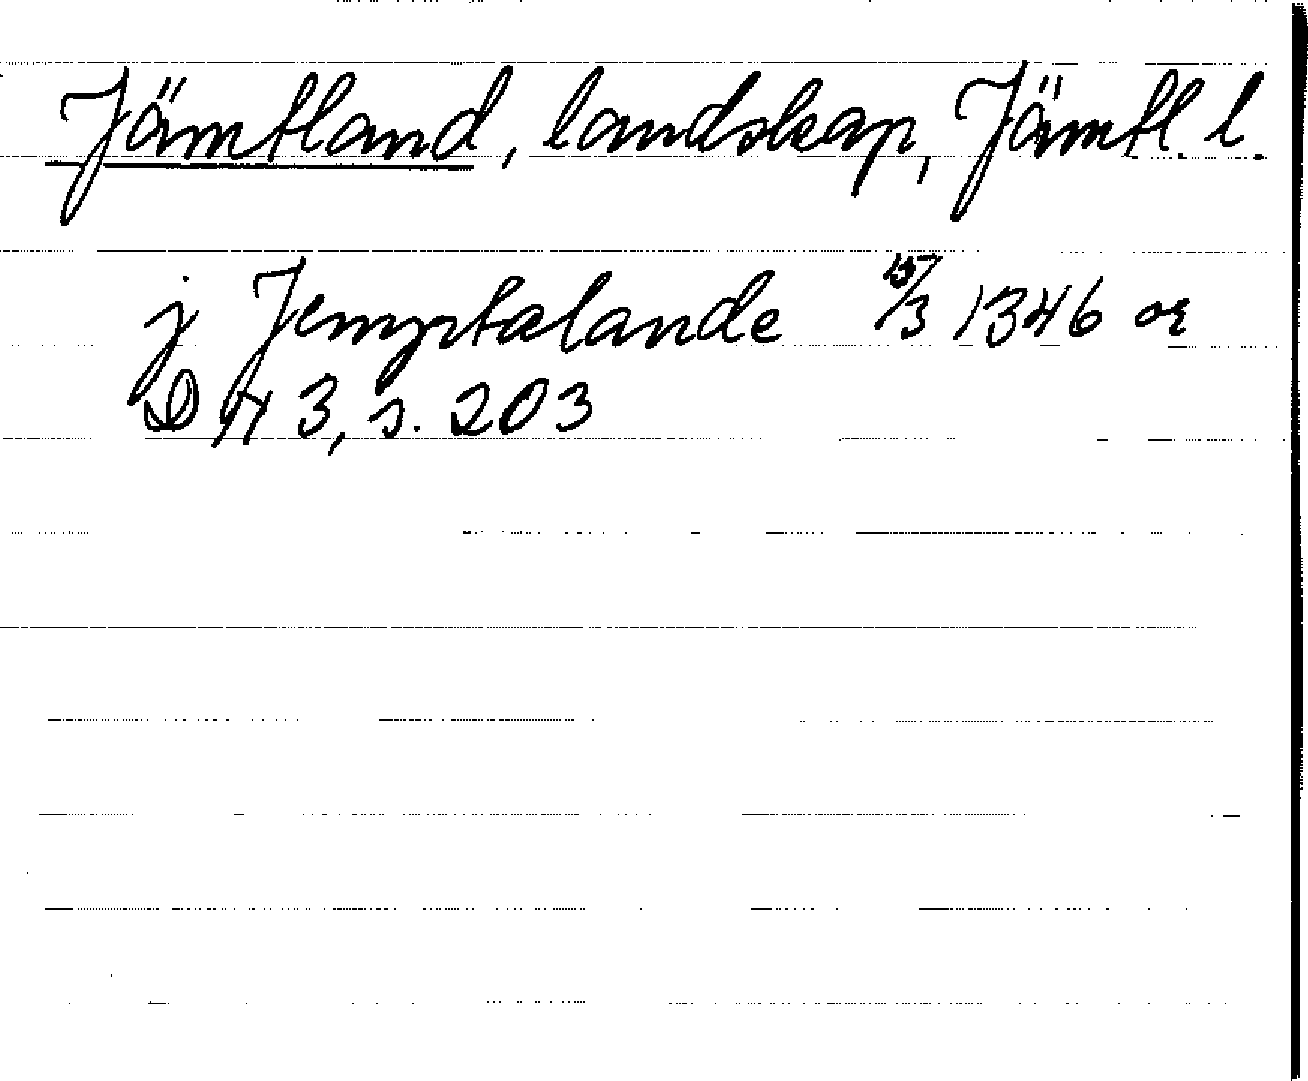 Jämtland, landskap, Jämtl. l.
j Jemptalande 15/3 1346 or
D H 3, s. 203